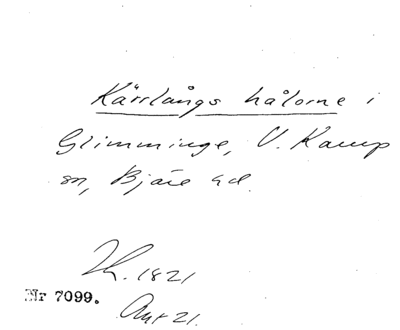 Kärrlångs hålorne i
Glimminge, V. Karup
sn, Bjäre hd.
1821
Nr 7099.
21.